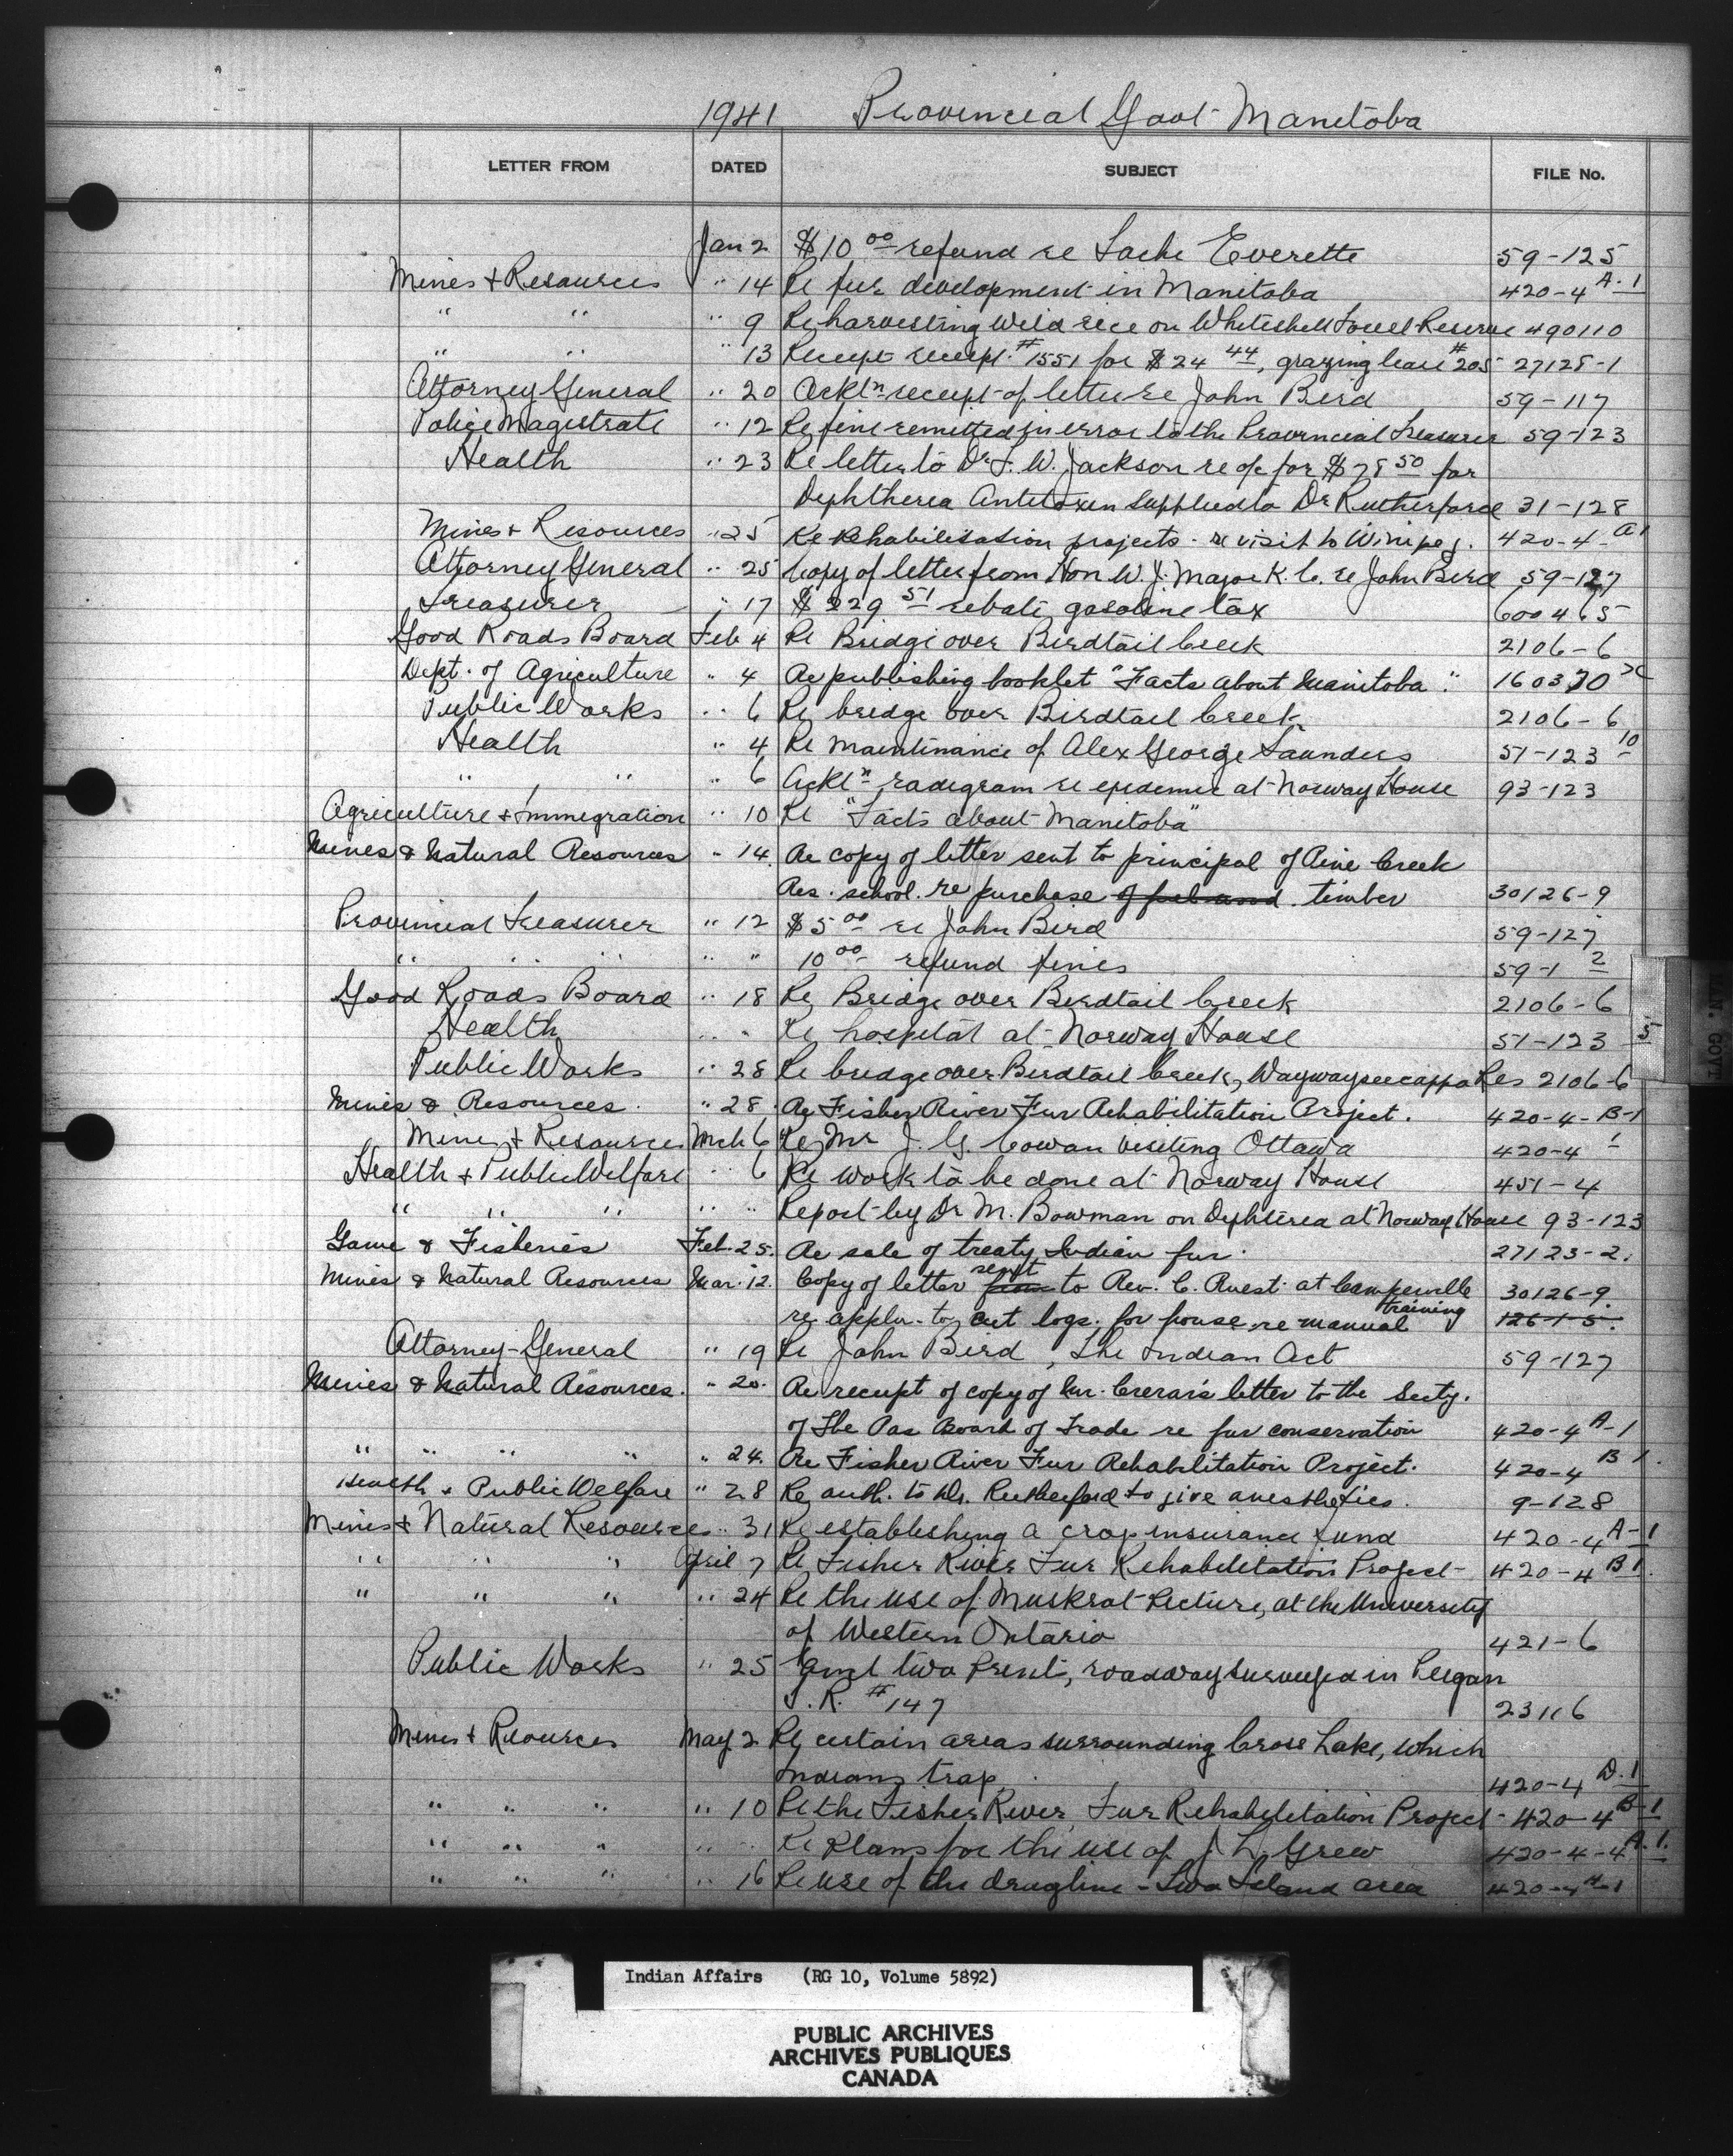 1941 Provincial Govt Manitoba
LETTER FROM DATED SUBJECT FILE No.
Jan 2 $10 00 refund re Everette 59-125
Mines & Resources " 14 Re fur development in Manitoba 420-4 A-1
" " " 9 Re harvesting wild rice on Whiteshell Reserve 490110
" " " 13 receipt #1551 for $24 44, grazing lease #205 27128-1
Attorney General " 20 Acktn receipt of letter re John Bird 59-117
Police Magistrate " 12 Re fine remitted in error to the Provincial Treasurer 59-123
Health " 23 Re letter to Dr F. W. Jackson re a/c for $78 50 for
Diphtheria Antitoxin supplied to Dr Rutherford 31-128
Mines & Resources " 25 Re Rehabilitation projects - re visit to Winipeg. 420-4-A1
Attorney General " 25 Copy of letter from Hon W. J. Major K.C. re John Bird 59-127
Treasurer " 17 $229 51 rebate gasoline tax 600465
Good Roads Board Feb 4 Re Bridge over Birdtail Creek 2106-6
Dept. of Agriculture " 4 Re publishing booklet "Facts about Manitoba." 160370
Public Works " 6 Re bridge over Birdtail Creek 2106-6
Health " 4 Re maintinance of Alex George Saunders 51-123 10
" " " 6 Acktn radiogram re epidemic at Norway House 93-123
Agriculture & Immigration " 10 Re "Facts about Manitoba"
Mines & Natural Resources " 14. Re copy of letter sent to principal of Pine Creek
Res. school. re purchase of fuel wood. timber 30126-9
Provincial Treasurer " 12 $5 00 re John Bird 59-127
" " " " " 10 00 refund fines 59-1 2
Good Roads Board " 18 Re Bridge over Birdtail Creek 2106-6
Health " " Re hospital at Norway House 51-123 5
Public Works " 28 Re bridge over Birdtail Creek, Waywayseecappo Res 2106-6
Mines & Resources. " 28. Re Fisher River Fur Rehabilitation Project. 420-4-B-1
Mines & Resources Mch 6 Re Mr J. G. Cowan visiting Ottawa 420-4 1
Health & Public Welfare " 6 Re work to be done at Norway House 451-4
" " " " " Report by Dr M. Bowman on Diphteria at Norway House 93-123
Game & Fisheries Feb. 25. Re sale of treaty Indian fur. 27123-2.
Mines & Natural Resources Mar. 12. Copy of letter from sent to Rev. C. Ruest at Camperville 30126-9.
re appln. to cut logs. for house re manual training 126-1-5.
Attorney-General " 19 Re John Bird, The Indian Act 59-127
Mines & Natural Resources. " 20. Re receipt of copy of Mr. Crerar's letter to the Secty.
of The Pas Board of Trade re fur conservation 420-4 A-1
" " " " " 24. Re Fisher River Fur Rehabilitation Project. 420-4 B 1.
Health & Public Welfare " 28 Re auth. to Dr. Rutherford to give anesthetics. 9-128
Mines & Natural Resources " 31 Re establishing a crop insurance fund 420-4 A-1
" " " April 7 Re Fisher River Fur Rehabilitation Project 420-4 B1.
" " " " 24 Re the use of Muskrat Picture, at the University
of Western Ontario 421-6
Public Works " 25 two Prints, roadway surveyed in Peigan
I.R. #147 23116
Mines & Resources May 2 Re certain areas surrounding Cross Lake, which
Indians trap. 420-4 D.1
" " " " 10 Re the Fisher River Fur Rehabilitation Project - 420-4 B-1
" " " " " Re Plans for the use of J. L. Grew 420-4-4 A.1.
" " " " 16 Re use of the dragline - Two Island area 420-4 A-1
MAN. GOVT
Indian Affairs (RG 10, Volume 5892)
PUBLIC ARCHIVES
ARCHIVES PUBLIQUES
CANADA